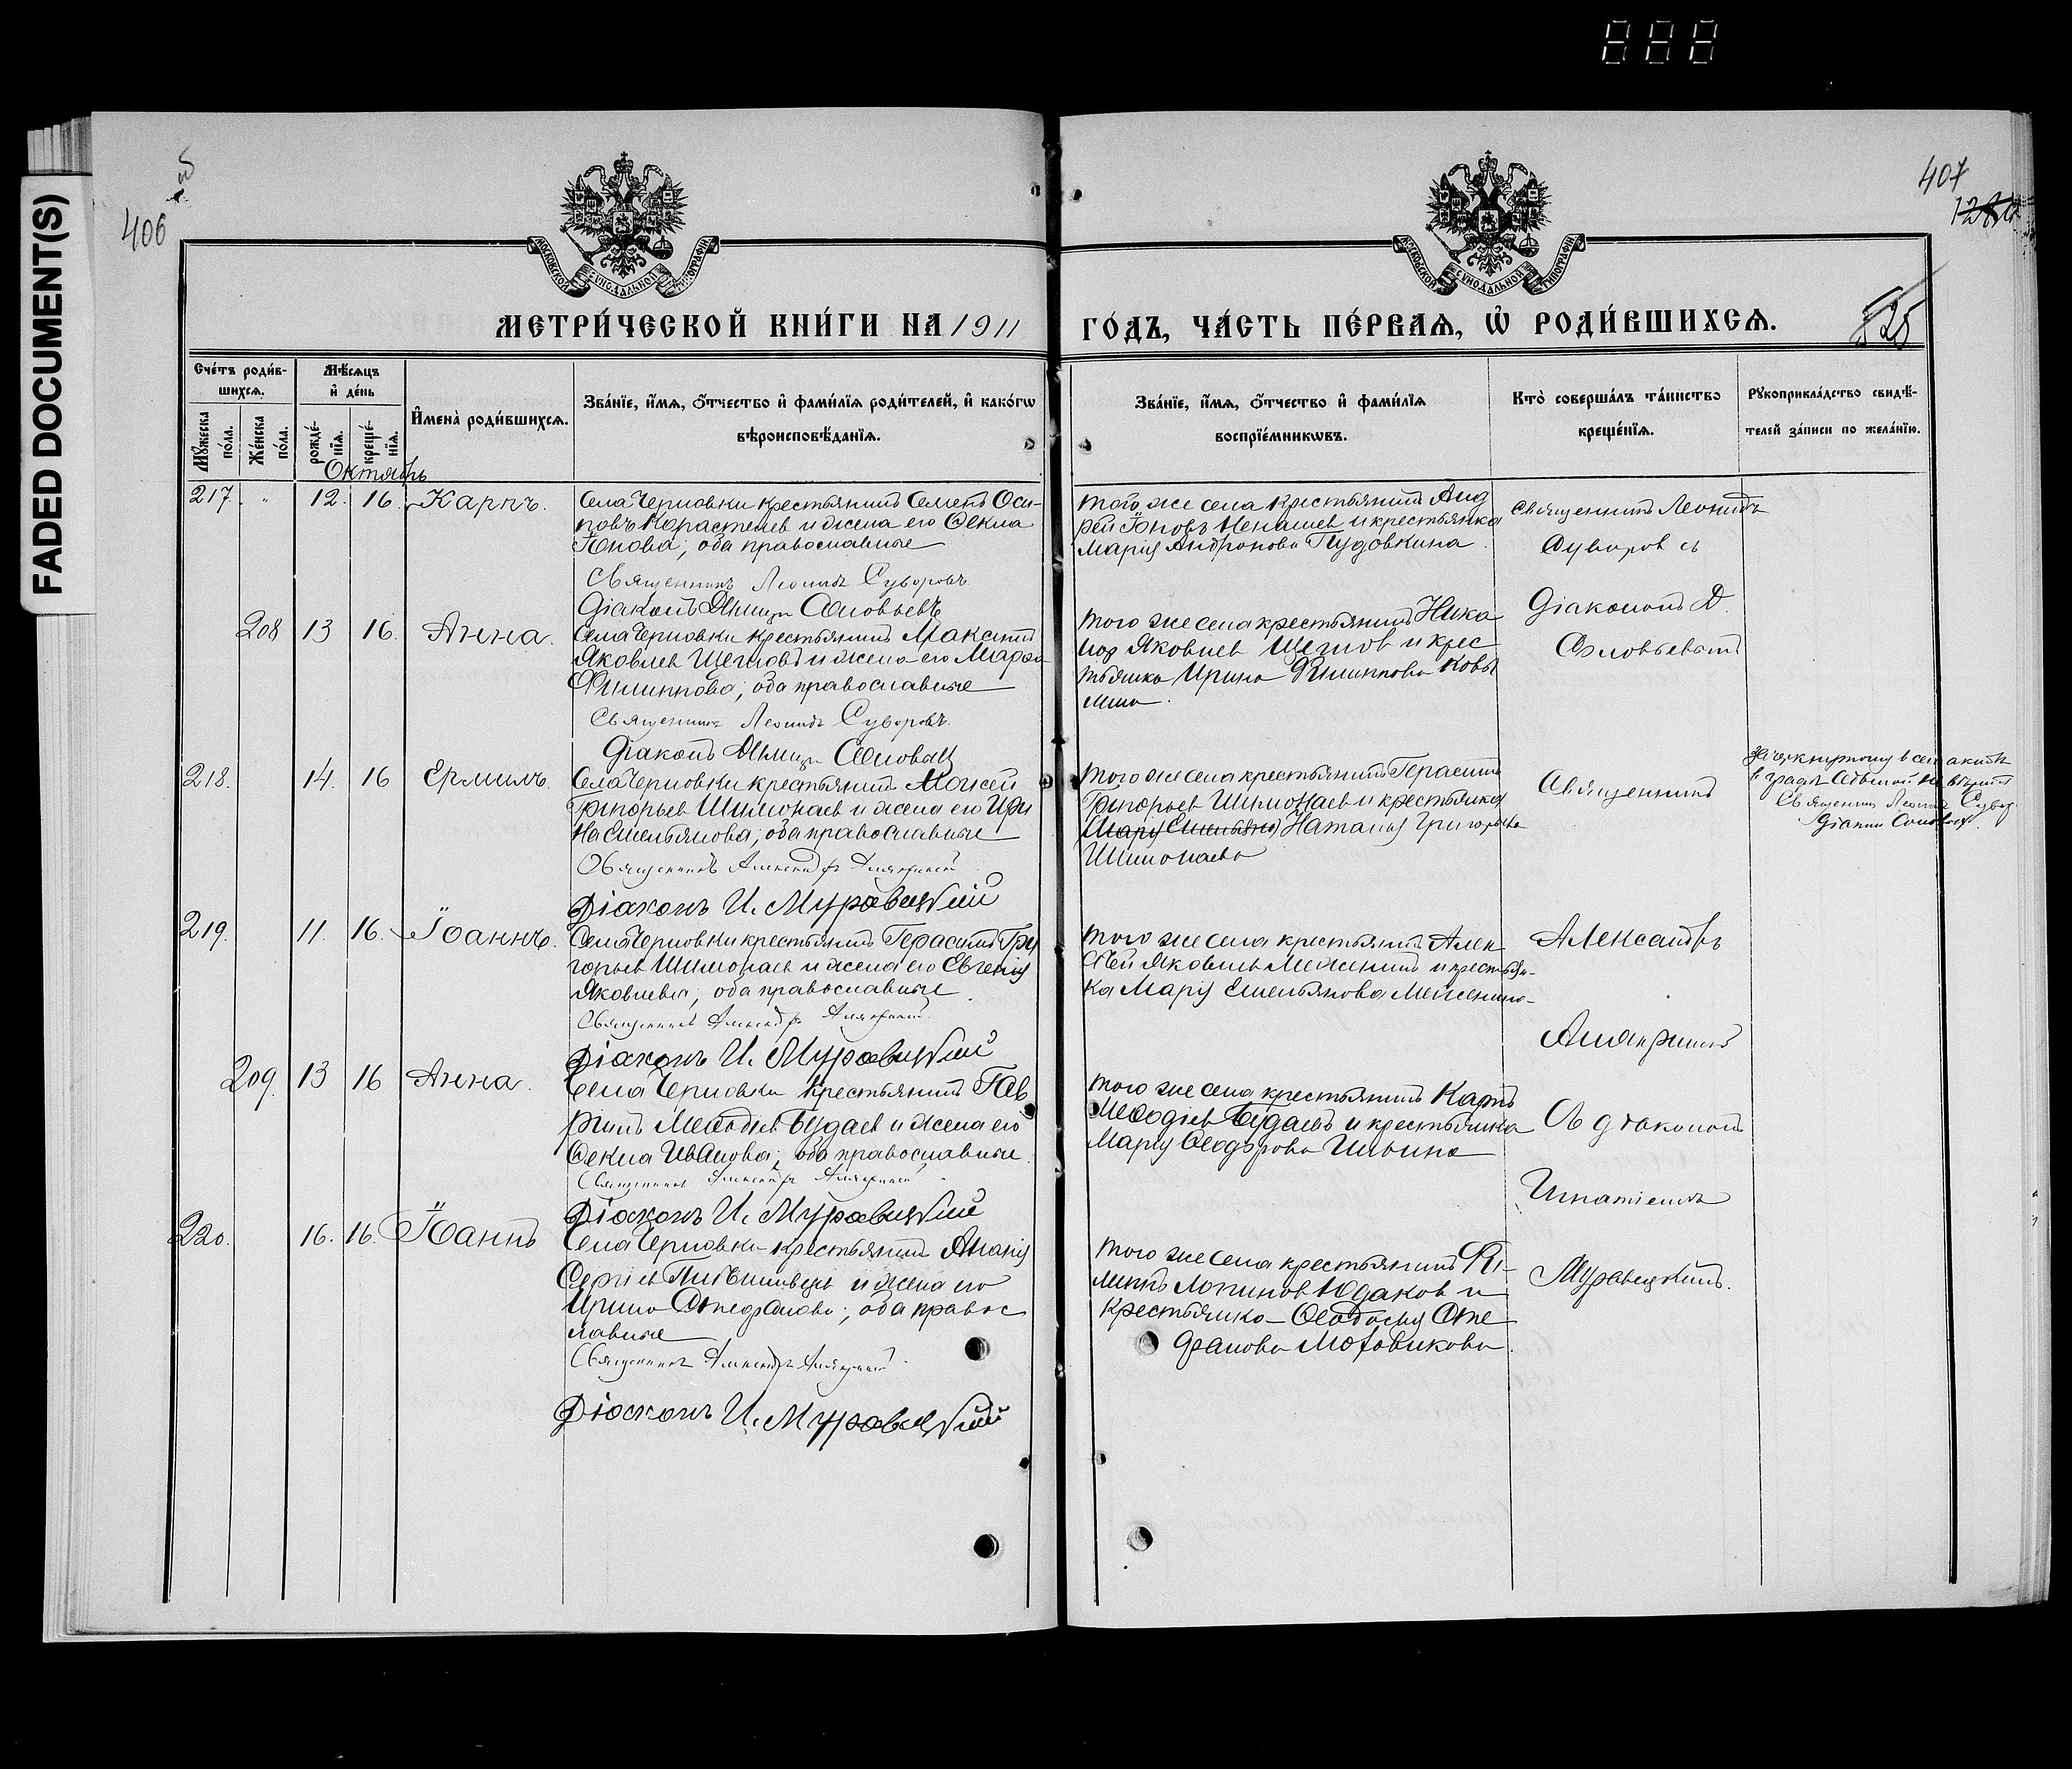 FADED DOCUMENT(S)
888
406
407
МОСКОВСКОЙ СѴНОДАЛЬНОЙ ТИПОГРАФІИ
МОСКОВСКОЙ СѴНОДАЛЬНОЙ ТИПОГРАФІИ
МЕТРИ́ЧЕСКОЙ КНИ́ГИ НА 1911
ГО́ДЪ, ЧА́СТЬ ПЕ́РВАѦ, Ѡ҆ РОДИ́ВШИХСѦ.
525
Сче́тъ роди́в-
шихсѧ.
Мꙋ́жеска по́ла.
Же́нска по́ла.
Мѣ́сѧцъ
и҆ де́нь
рожде́-
нїѧ.
креще́-
нїѧ.
И҆мена̀ роди́вшихсѧ.
Зва́нїе, и҆́мѧ, ѻ҆́тчество и҆ фами́лїѧ роди́телей, и҆ како́гѡ
вѣроисповѣ́данїѧ.
Зва́нїе, и҆́мѧ, ѻ҆́тчество и҆ фами́лїѧ
воспрїе́мникѡвъ.
Кто̀ соверша́лъ та́инство
креще́нїѧ.
Рꙋкоприкла́дство свидѣ́-
телей за́писи по жела́нїю.
Октябрь
217. " 12. 16. Карпъ.
Села Черновки крестьянинъ Семенъ Оси-
повъ Карастелев и жена его Ѳекла
Іонова; оба православные
Священникъ Леонидъ Суворовъ
Діаконъ Дмитр Соловьевъ
того же села крестьянинъ Анд
рей Іоновъ Ненашев и крестьянка
Марія Андронова Пудовкина
Священникъ Леонидъ
Суворовъ
208 13 16. Анна.
Села Черновки крестьянинъ Максимъ
Яковлев Щегловъ и жена его Марѳа
Филиппова; оба православные
Священникъ Леонидъ Суворовъ.
Діаконъ Дмитр Соловьев
того же села крестьянинъ Ника
нор Яковлев Щеглов и крес
тьянка Ирина Филиппова Ковы
лина.
Діакономъ Д.
Соловьевымъ
218. 14. 16 Ермилъ.
Села Черновки крестьянинъ Моисей
Григорьев Шишонаев и жена его Ири
на Емельянова; оба православные
Священникъ Александръ
Діаконъ И. Муравицкій
того же села крестьянинъ Герасимъ
Григорьев Шишонаев и крестьянка
Наталія Григорьева
Шишонаева
Священникъ
Зачеркнутому в семъ актѣ
в графѣ седьмой не вѣрить
Священникъ Леонидъ Сувор
Діаконъ Соловьев.
219. 11. 16. Іоаннъ.
Села Черновки крестьянинъ Герасимъ Гри
горьев Шишонаев и жена его Евгенія
Яковлева; оба православные.
Священникъ Александръ
Діаконъ И. Муравицкій
того же села крестьянинъ Алек
сѣй Яковлев Меженинъ и крестьян-
ка Марія Емельянова Меженина-
Александръ
209. 13 16 Анна.
Села Черновки крестьянинъ Гав
риилъ Меѳодіев Будаев и жена его
Ѳекла Иванова; оба православные.
Священникъ Александръ
Діаконъ И. Муравицкій
того же села крестьянинъ Карпъ
Меѳодіев Будаевъ и крестьянка
Марія Ѳеодорова Ильина
Съ діакономъ
Игнатіемъ
220. 16. 16. Іоаннъ
Села Черновки крестьянинъ Ананій
Сергіев и жена его
Ирина Стефанова; оба правос
лавные
Священникъ Александръ
Діаконъ И. Муравицкій
того же села крестьянинъ Фи-
липпъ Логинов Юдаков и
крестьянка Ѳеодосія Сте
фанова Моховикова.
Муравицкимъ.